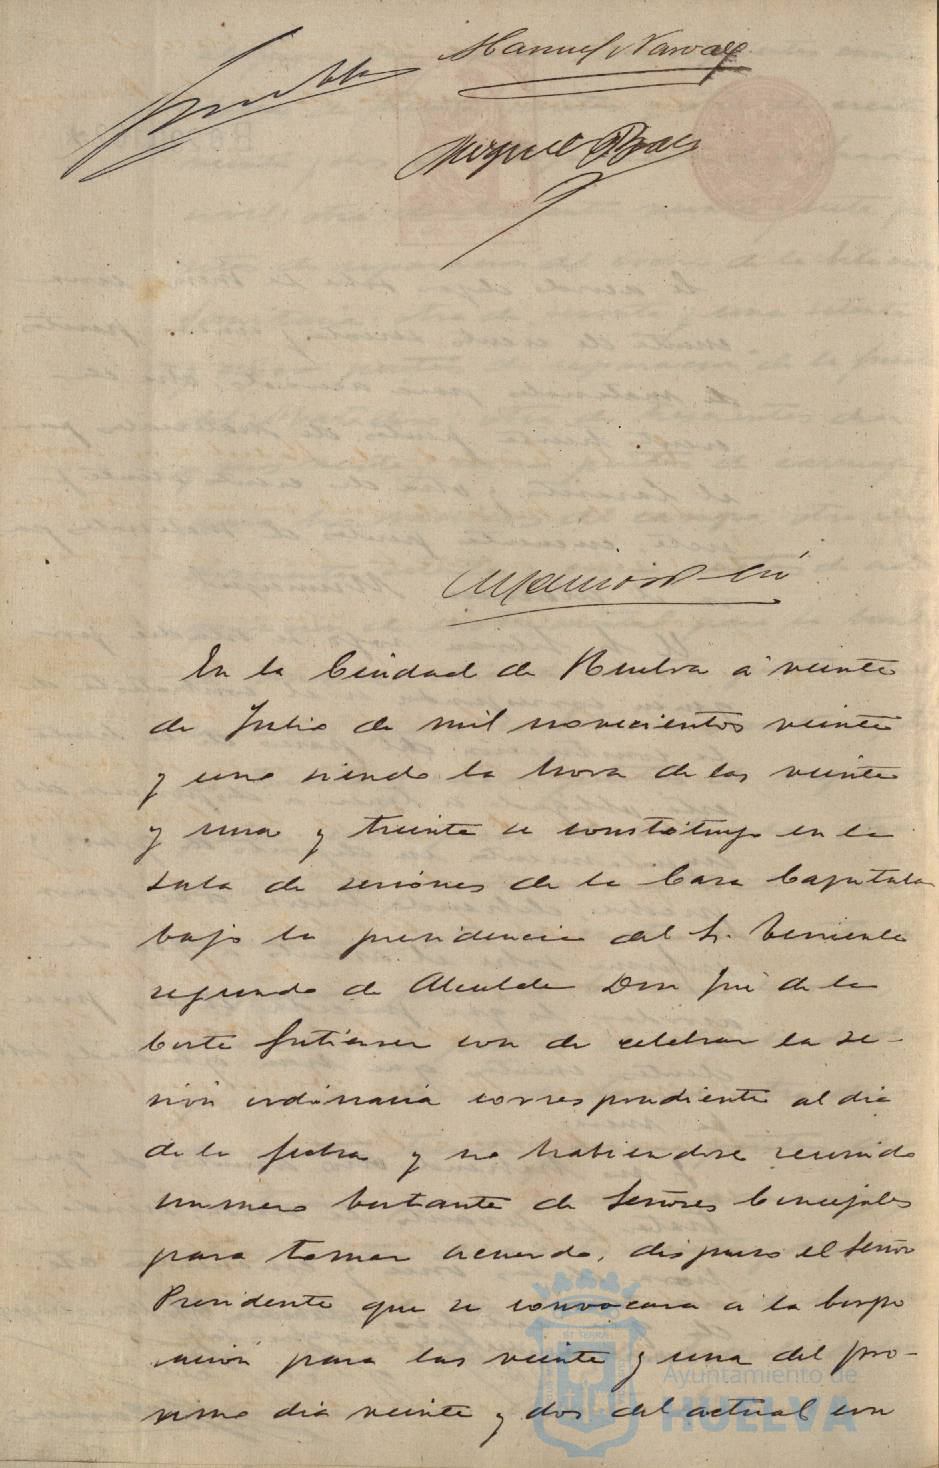 Manuel Narvaez
Miguel Baez
En la Ciudad de Huelva á veinte
de Julio de mil novecientos veinte
y uno siendo la hora de las veinte
y una y treinta se constituyo en la
sala de sesiones de la Casa Capitular
bajo la presidencia del Sr. Teniente
segundo de Alcalde Don José de la
Corte Gutierrez con de celebrar la se-
sión ordinaria correspondiente al dia
de la fecha y no habiendose reunido
numero bastante de Señores Concejales
para tomar acuerdo, dispuso el Señor
Presidente que se convocara á la Corpo
ración para las veinte y una del pro-
ximo dia veinte y dos del actual con
Ayuntamiento de
HUELVA